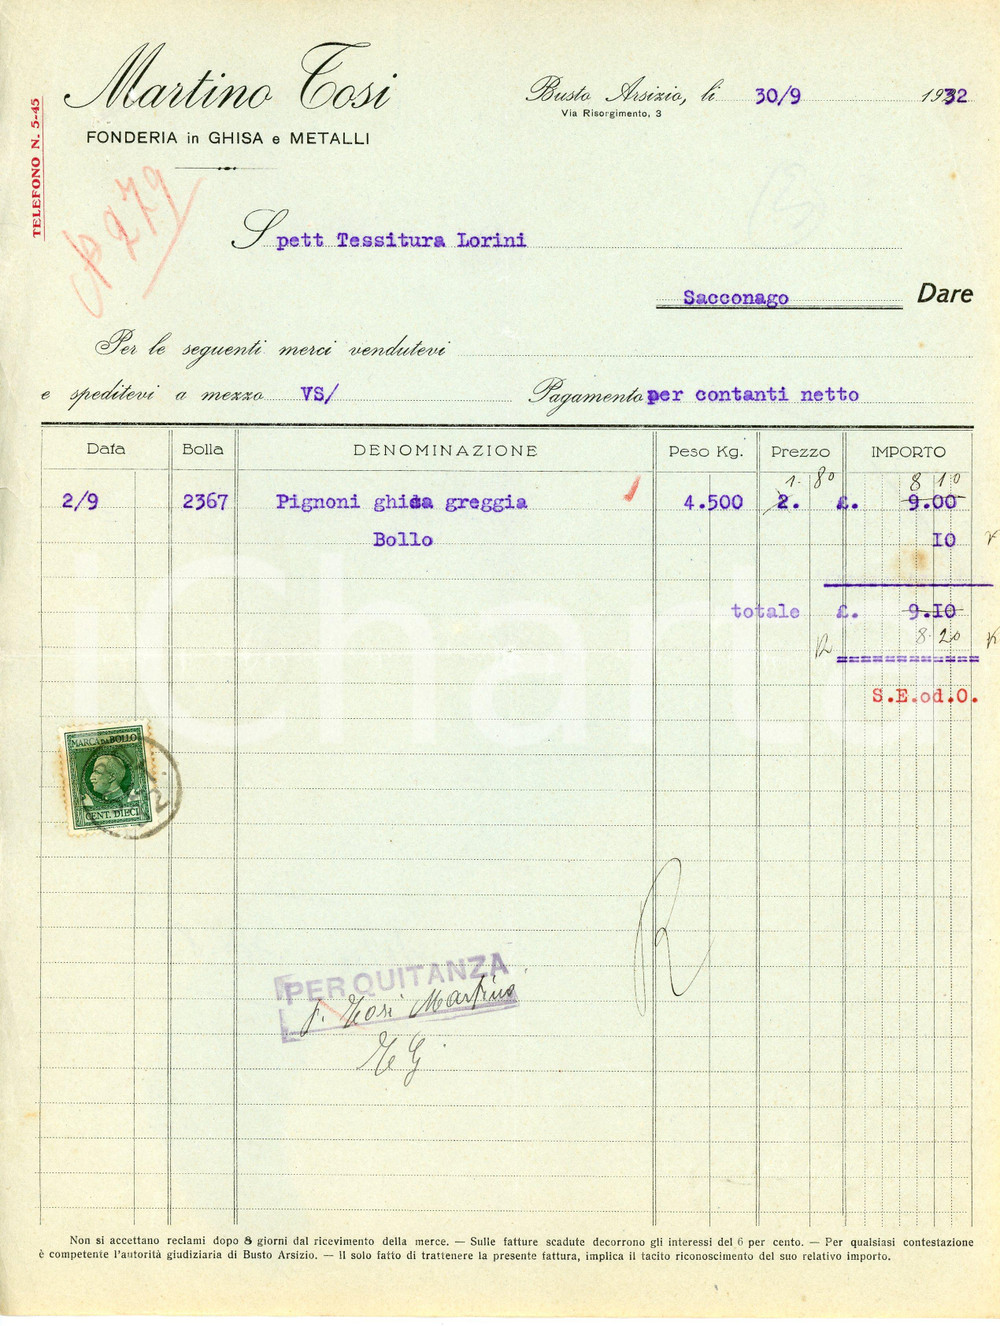 Martino Tosi
FONDERIA in GHISA e METALLI
TELEFONO N. 5-45
Busto Arsizio, li 30/9 1932
Via Risorgimento, 3
279
Spett Tessitura Lorini
Sacconago Dare
Per le seguenti merci vendutevi
e speditevi a mezzo VS/ Pagamento per contanti netto
Data Bolla DENOMINAZIONE Peso Kg. Prezzo IMPORTO
1.80 8 10
2/9 2367 Pignoni ghisa greggia 4.500 2. £. 9.00
Bollo 10
totale £. 9.10
8.20
S.E.od.O.
MARCA DA BOLLO
CENT. DIECI
R
PER QUITANZA
p. Tosi Martino
Non si accettano reclami dopo 8 giorni dal ricevimento della merce. — Sulle fatture scadute decorrono gli interessi del 6 per cento. — Per qualsiasi contestazione
è competente l'autorità giudiziaria di Busto Arsizio. — Il solo fatto di trattenere la presente fattura, implica il tacito riconoscimento del suo relativo importo.
iCharta